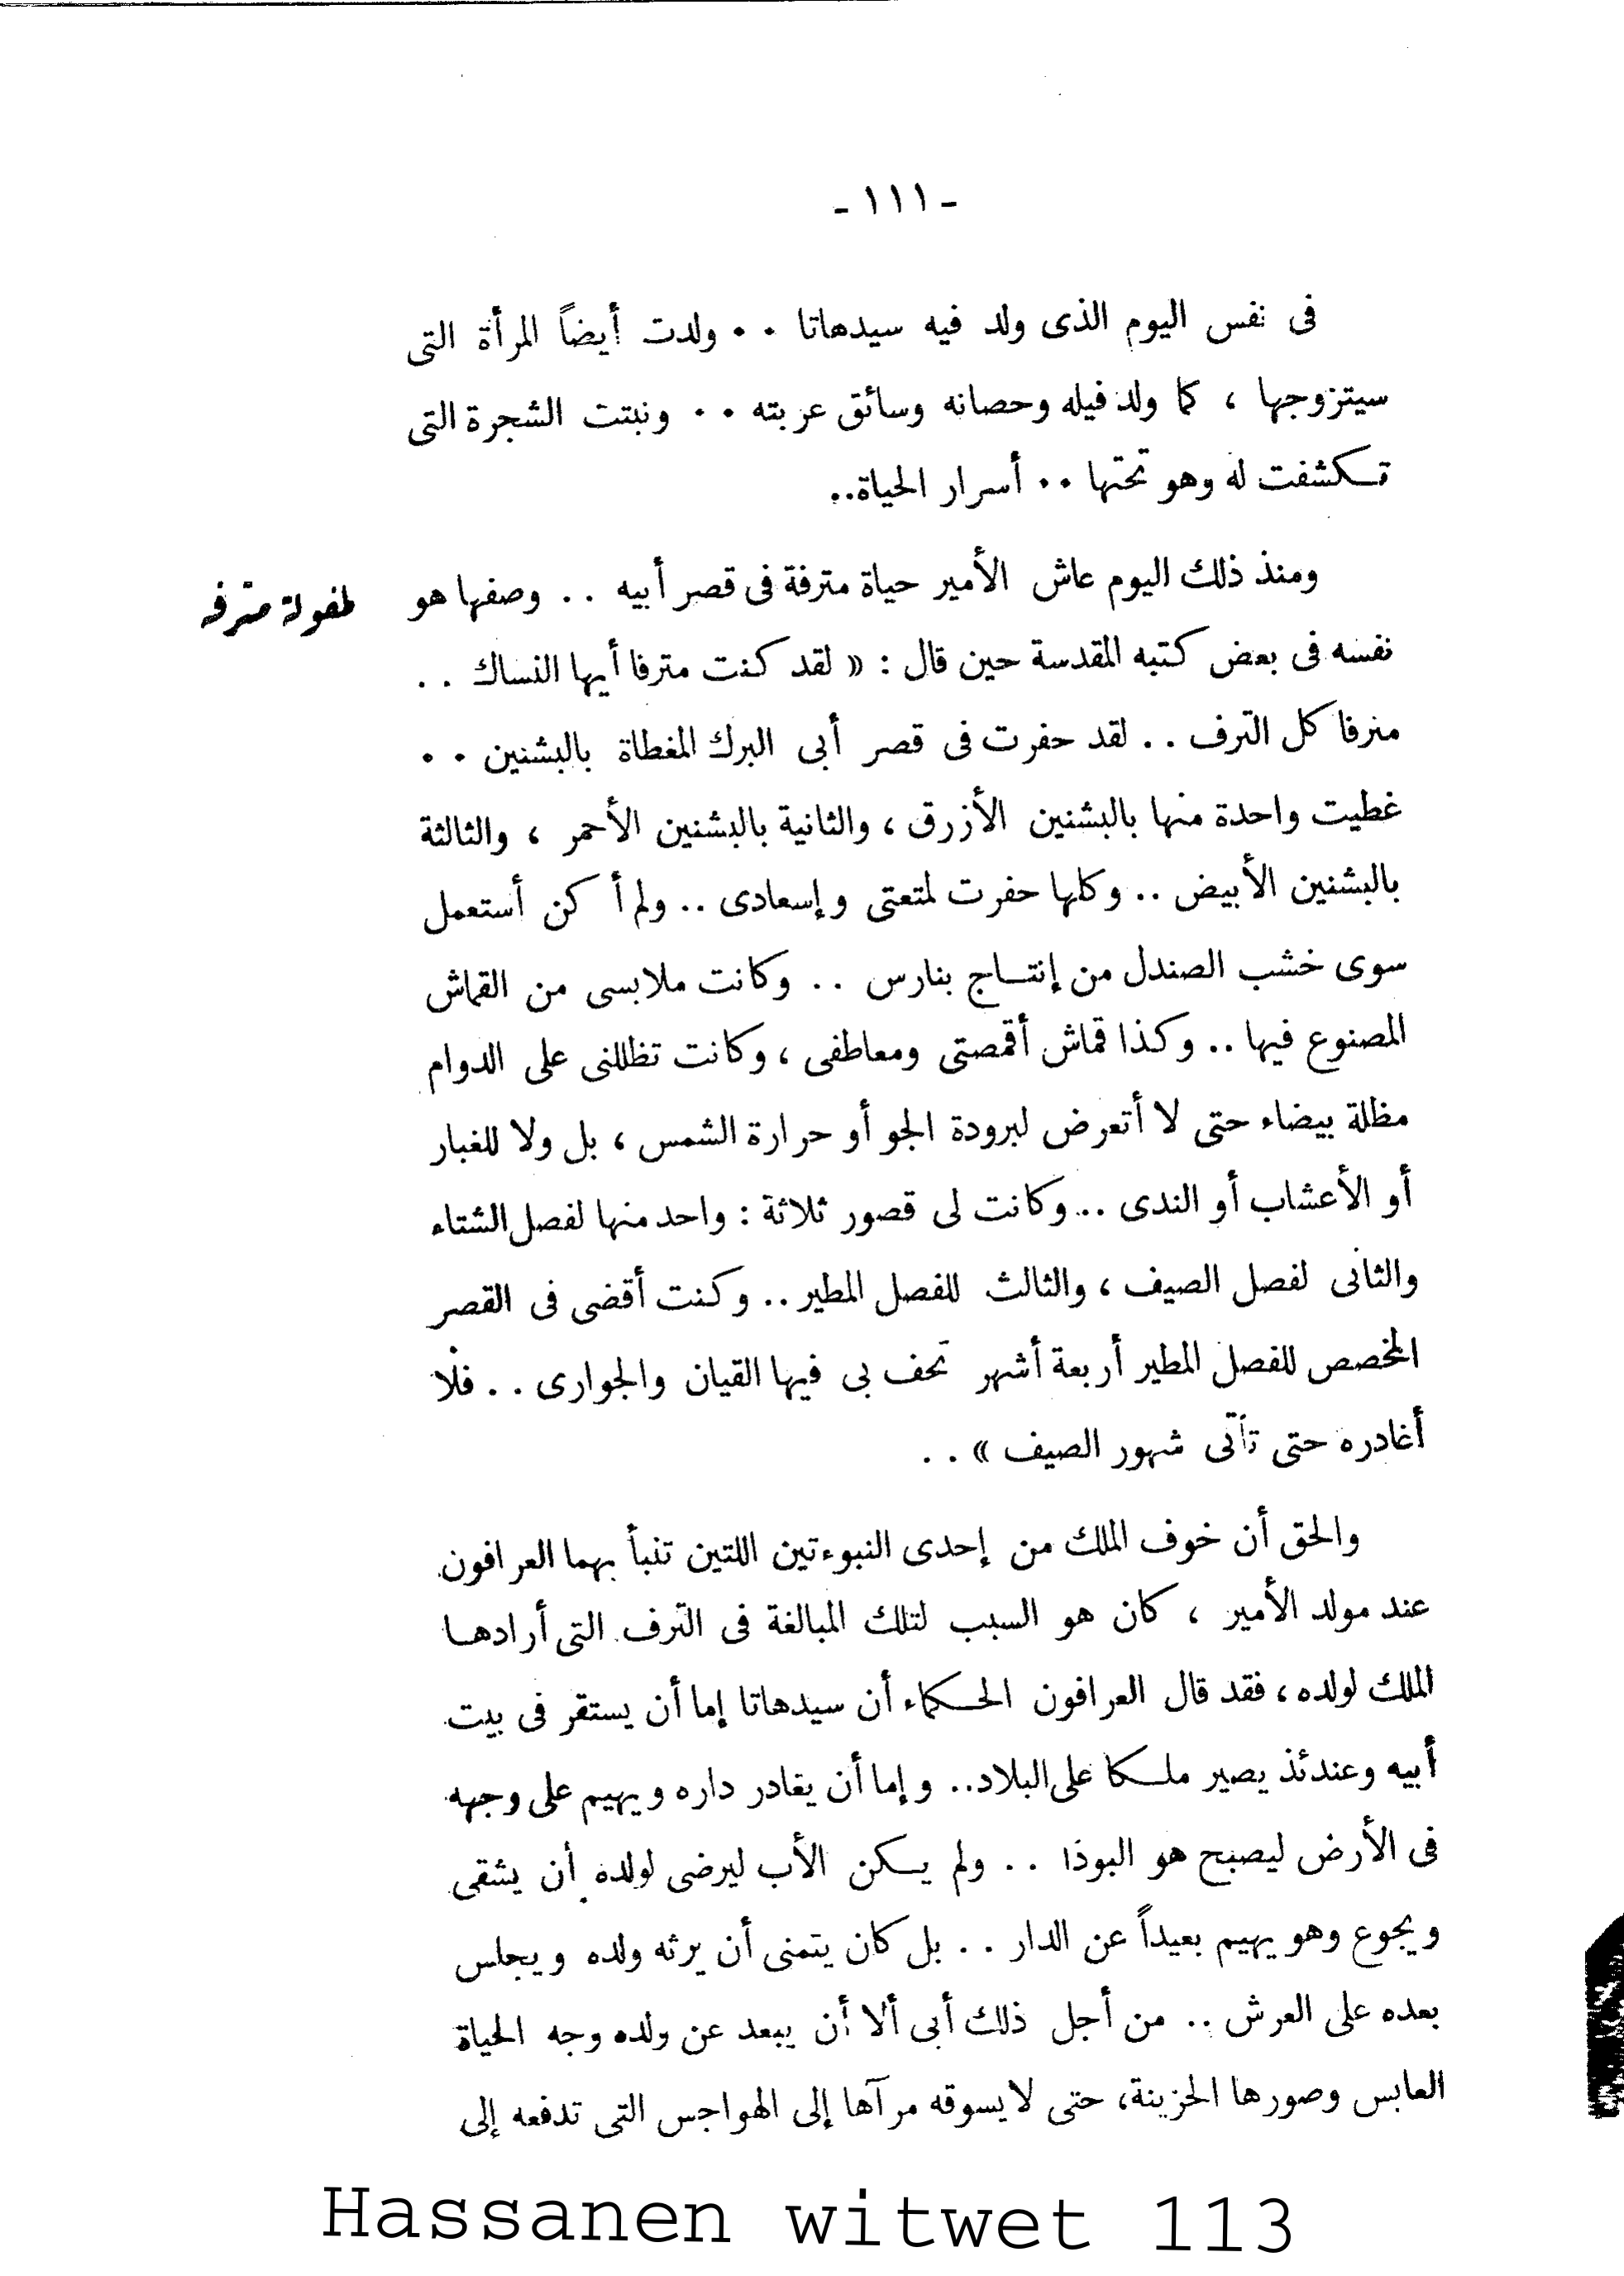 - ١١١ -
فى نفس اليوم الذى ولد فيه سيدهاتا .. ولدت أيضاً المرأة التى
سيتزوجها ، كما ولد فيله وحصانه وسائق عربته .. ونبتت الشجرة التى
تكشفت له وهو تحتها .. أسرار الحياة..
ومنذ ذلك اليوم عاش الأمير حياة مترفة فى قصر أبيه .. وصفها هو
طفولة مترفه
نفسه فى بعض كتبه المقدسة حين قال : « لقد كنت مترفا أيها النساك ..
مترفا كل الترف .. لقد حفرت فى قصر أبى البرك المغطاة بالبشنين ..
غطيت واحدة منها بالبشنين الأزرق ، والثانية بالبشنين الأحمر ، والثالثة
بالبشنين الأبيض .. وكلها حفرت لمتعتى وإسعادى .. ولم أكن أستعمل
سوى خشب الصندل من إنتاج بنارس .. وكانت ملابسى من القماش
المصنوع فيها .. وكذا قماش أقمصتى ومعاطفى ، وكانت تظللنى على الدوام
مظلة بيضاء حتى لا أتعرض لبرودة الجو أو حرارة الشمس ، بل ولا للغبار
أو الأعشاب أو الندى .. وكانت لى قصور ثلاثة : واحد منها لفصل الشتاء
والثانى لفصل الصيف ، والثالث للفصل المطير .. وكنت أقضى فى القصر
المخصص للفصل المطير أربعة أشهر تحف بى فيها القيان والجوارى .. فلا
أغادره حتى تأتى شهور الصيف » ..
والحق أن خوف الملك من إحدى النبوءتين اللتين تنبأ بهما العرافون
عند مولد الأمير ، كان هو السبب لتلك المبالغة فى الترف التى أرادها
الملك لولده ، فقد قال العرافون الحكماء أن سيدهاتا إما أن يستقر فى بيت
أبيه وعندئذ يصير ملكا على البلاد.. وإما أن يغادر داره ويهيم على وجهه
فى الأرض ليصبح هو البوذا .. ولم يكن الأب ليرضى لولده أن يشقى
ويجوع وهو يهيم بعيداً عن الدار .. بل كان يتمنى أن يرثه ولده ويجلس
بعده على العرش .. من أجل ذلك أبى ألا أن يبعد عن ولده وجه الحياة
العابس وصورها الحزينة، حتى لا يسوقه مرآها إلى الهواجس التى تدفعه إلى
Hassanen witwet 113